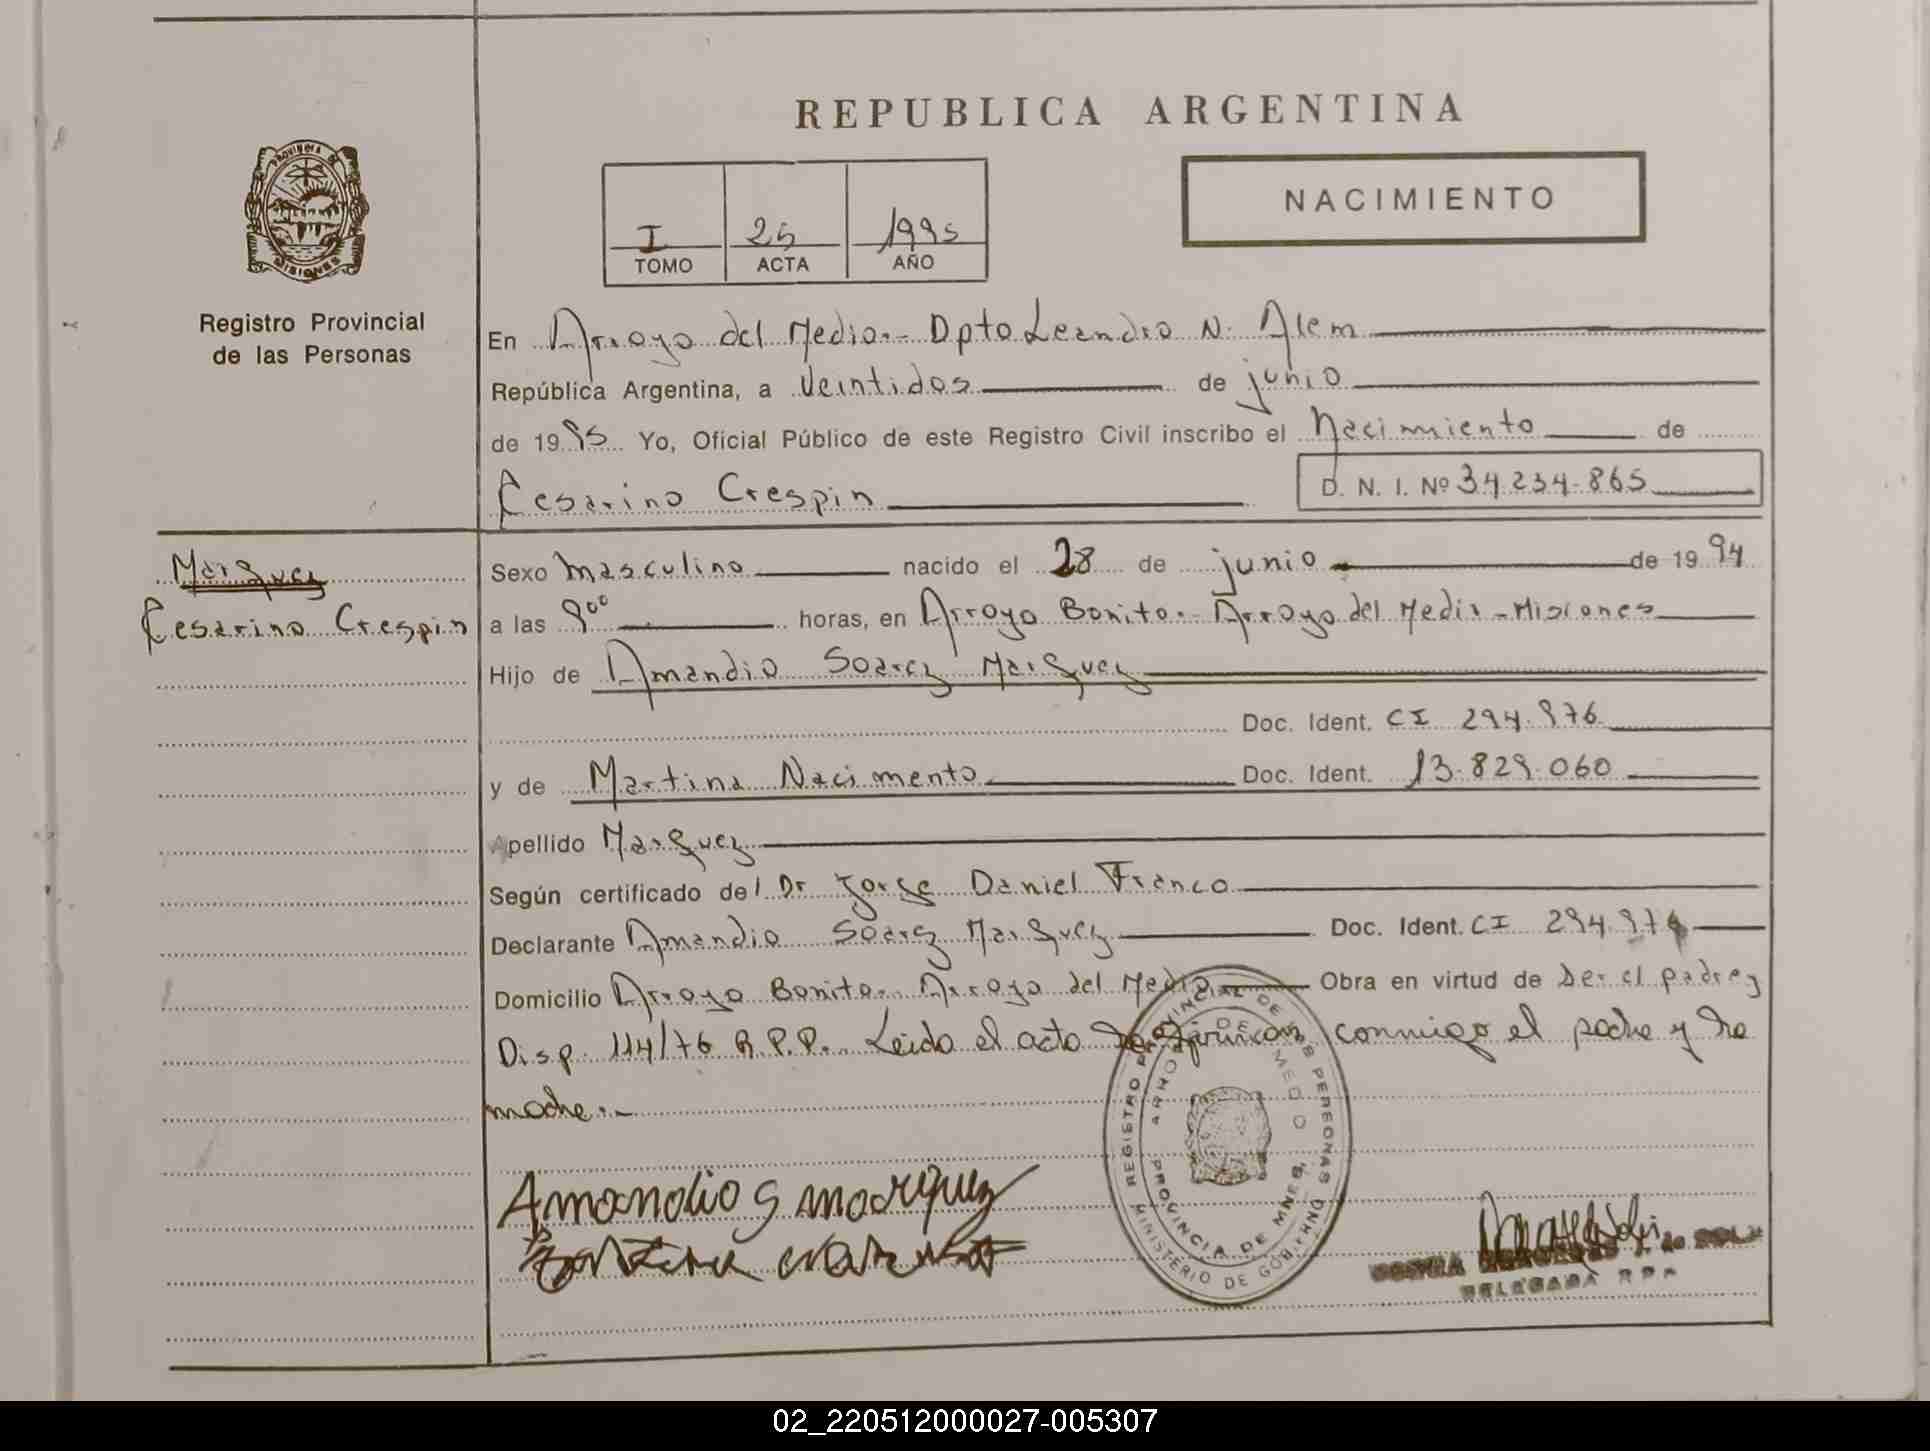 REPUBLICA ARGENTINA
NACIMIENTO
I 25 1995
TOMO ACTA AÑO
PROVINCIA DE
MISIONES
Registro Provincial
de las Personas
En Arroyo del Medio.- Dpto Leandro N. Alem
República Argentina, a Veintidos de junio
de 1995 Yo, Oficial Público de este Registro Civil inscribo el Nacimiento de
Cesarino Crespin D. N. I. Nº 34.234.865
Marquez
Cesarino Crespin
Sexo masculino nacido el 28 de junio de 1994
a las 9⁰⁰ horas, en Arroyo Bonito.- Arroyo del Medio - Misiones
Hijo de Amandio Soarez Marquez
Doc. Ident. CI 294.976
y de Martina Nacimento Doc. Ident. 13.829.060
Apellido Marquez
Según certificado del Dr Jorge Daniel Franco
Declarante Amandio Soarez Marquez Doc. Ident. CI 294.976
Domicilio Arroyo Bonito.- Arroyo del Medio Obra en virtud de Ser el padre y
Disp. 114/76 R.P.P. Leida el acta la firman conmigo el padre y la
madre.-
Amandio S marquez
REGISTRO PROVINCIAL DE LAS PERSONAS
MINISTERIO DE GOBIERNO
ARROYO DEL MEDIO
PROVINCIA DE MNES.
DELEGADA R P P
02_220512000027-005307